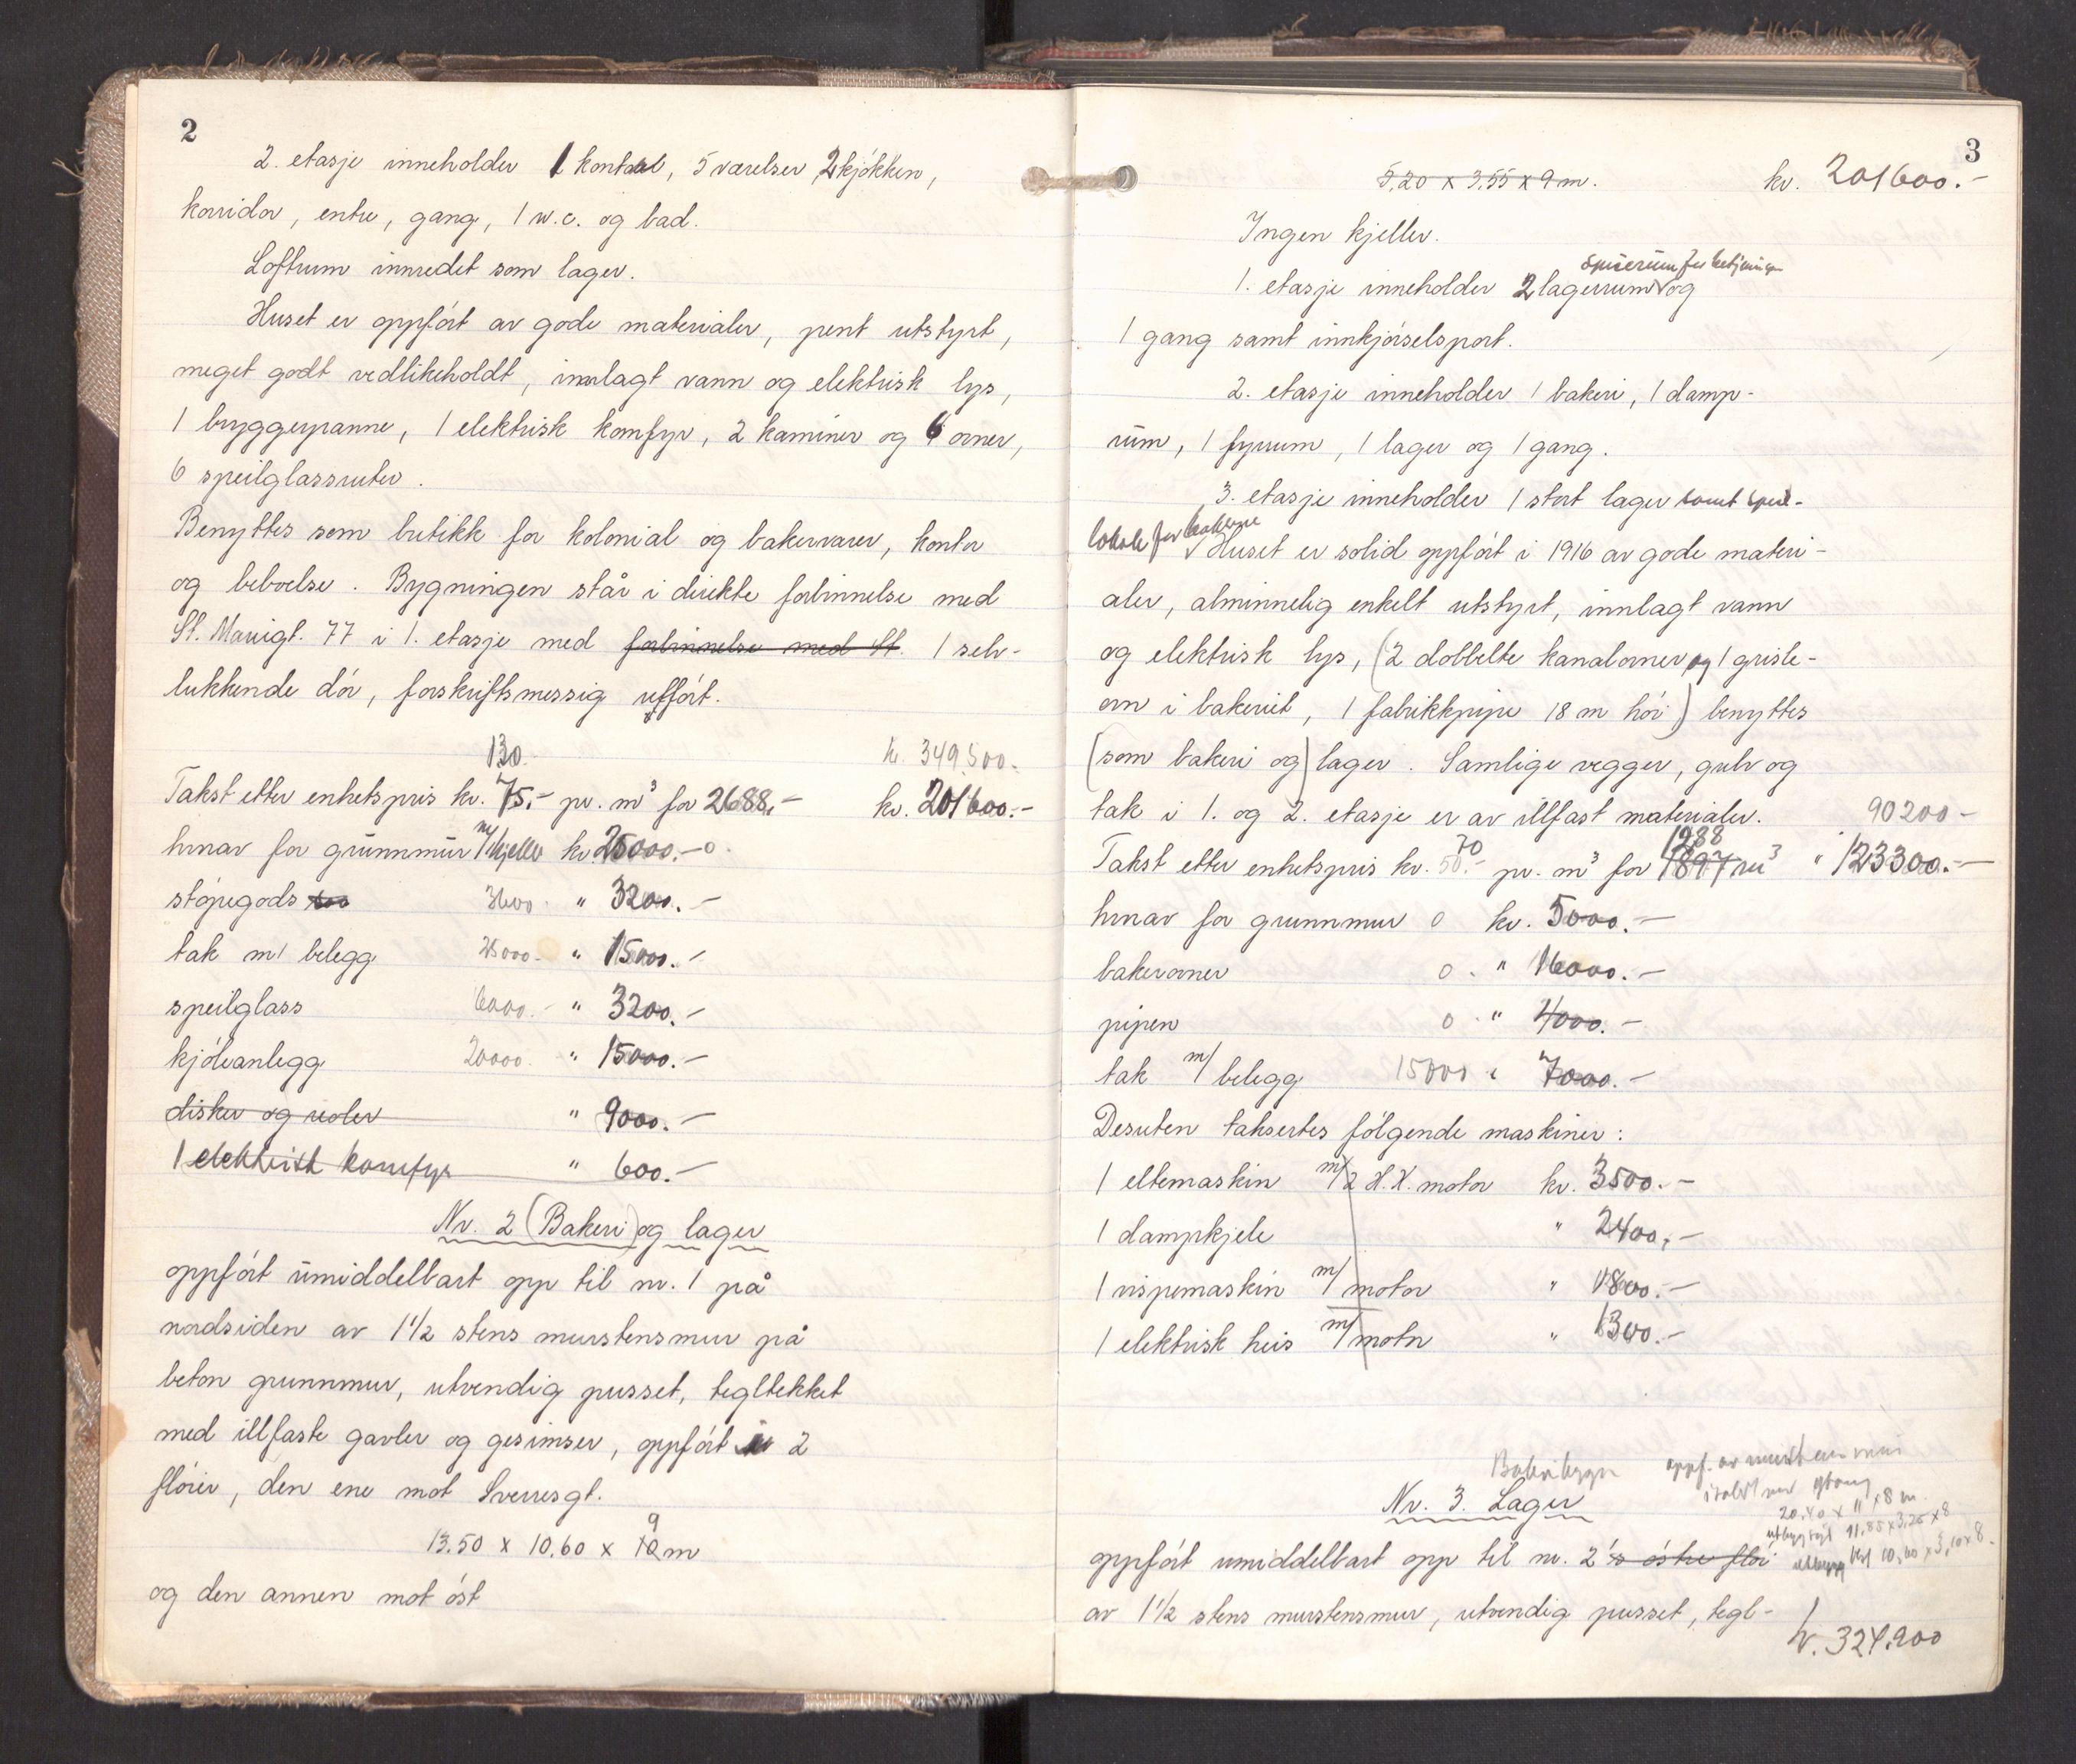 2
2. etasje inneholder 1 kontor, 5 værelser, 2 kjøkken,
korridor, entre, gang, 1 w.c. og bad.
Loftrum innredet som lager.
Huset er oppført av gode materialer, pent utstyrt,
meget godt vedlikeholdt, innlagt vann og elektrisk lys,
1 bryggerpanne, 1 elektrisk komfyr, 2 kaminer og 6 ovner,
6 speilglassruter.
Benyttes som butikk for kolonial og bakervarer, kontor
og beboelse. Bygningen står i direkte forbinnelse med
St. Mariegt. 77 i 1. etasje med forbinnelse med St. 1 selv-
lukkende dør, forskriftsmessig utført.
130. kr 349.500.-
Takst etter enhetspris kr. 75.- pr. m³ for 2688,- kr. 201600.-
hvorav for grunnmur m/kjeller kr. 25000.- 0.
støpegods 3600. " 3200.-
tak m/ belegg 25000.- " 15000.-
speilglass 6000.- " 3200.-
kjøleanlegg 20000. " 15000.-
disker og reoler " 9000.-
1 elektrisk komfyr " 600.-
Nr. 2 (Bakeri) og lager
oppført umiddelbart opp til nr. 1 på
nordsiden av 1 1/2 stens murstensmur på
beton grunnmur, utvendig pusset, tegltekket
med illfaste gavler og gesimser, oppført i 2
fløier, den ene mot Sverresgt.
9
13.50 x 10.60 x 10 m
og den annen mot øst
3
5.20 x 3.55 x 9 m. kr. 201600.-
Ingen kjeller.
spiserum for betjening
1. etasje inneholder 2 lagerrum og
1 gang samt innkjørselsport.
2. etasje inneholder 1 bakeri, 1 damp-
rum, 1 fyrrum, 1 lager og 1 gang.
3. etasje inneholder 1 stort lager samt spise-
lokale for bakerne
Huset er solid oppført i 1916 av gode materi-
aler, alminnelig enkelt utstyrt, innlagt vann
og elektrisk lys, (2 dobbelte kanalovner og 1 grisle-
ovn i bakeriet, 1 fabrikkpipe 18 m høi) benyttes
(som bakeri og) lager. Samlige vegger, gulv og
tak i 1. og 2. etasje er av illfast materialer. 90200-
70 1288
Takst etter enhetspris kr. 50.- pr. m³ for 1897 m³ " 123300.-
hvorav for grunnmur 0 kr. 5000.-
bakerovner 0. " 16000.-
pipen 0. " 4000.-
tak m/ belegg 15000 " 7000.-
Desuten takseres følgende maskiner:
1 eltemaskin m/2 H.K. motor kr. 3500.-
1 dampkjele " 2400.-
1 vispemaskin m/ motor " 1800.-
1 elektrisk heis m/ motor " 1300.-
Bakeribygn oppf. av murstensmur
20.40 x 11 x 8 m.
Nr. 3. Lager
utbygg 11.85 x 3.25 x 8
oppført umiddelbart opp til nr. 2's østre fløi
utbygg 10.60 x 3.10 x 8.
av 1 1/2 stens murstensmur, utvendig pusset, tegl-
kr. 324.900